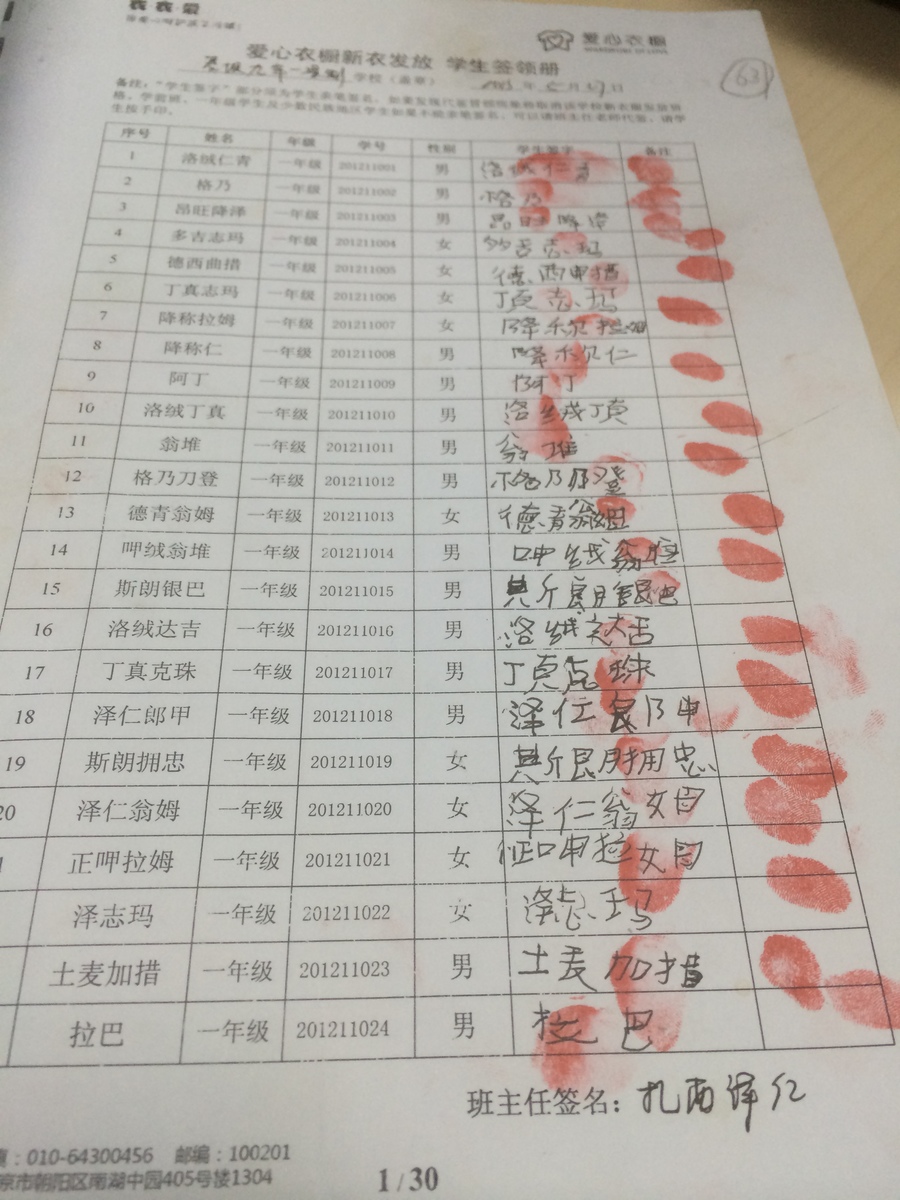 爱心衣橱
63
爱心衣橱新衣发放 学生签领册
学校（盖章） 年 月 日
备注："学生签字"部分须为学生亲笔签名，
序号 姓名 年级 学号 性别 学生签字 备注
1 洛绒仁青 一年级 201211001 男 洛绒仁青
2 格乃 一年级 201211002 男 格乃
3 昂旺降泽 一年级 201211003 男 昂旺降泽
4 多吉志玛 一年级 201211004 女 多吉志玛
5 德西曲措 一年级 201211005 女 德西曲措
6 丁真志玛 一年级 201211006 女 丁真志玛
7 降称拉姆 一年级 201211007 女 降称拉姆
8 降称仁 一年级 201211008 男 降称仁
9 阿丁 一年级 201211009 男 阿丁
10 洛绒丁真 一年级 201211010 男 洛绒丁真
11 翁堆 一年级 201211011 男 翁堆
12 格乃刀登 一年级 201211012 男 格乃刀登
13 德青翁姆 一年级 201211013 女 德青翁姆
14 呷绒翁堆 一年级 201211014 男 呷绒翁堆
15 斯朗银巴 一年级 201211015 男 斯朗银巴
16 洛绒达吉 一年级 201211016 男 洛绒达吉
17 丁真克珠 一年级 201211017 男 丁真克珠
18 泽仁郎甲 一年级 201211018 男 泽仁郎甲
19 斯朗拥忠 一年级 201211019 女 斯朗拥忠
20 泽仁翁姆 一年级 201211020 女 泽仁翁姆
1 正呷拉姆 一年级 201211021 女 征呷拉姆
泽志玛 一年级 201211022 女 泽志玛
土麦加措 一年级 201211023 男 土麦加措
拉巴 一年级 201211024 男 拉巴
班主任签名：扎西泽仁
真：010-64300456 邮编：100201
京市朝阳区南湖中园405号楼1304
1/30